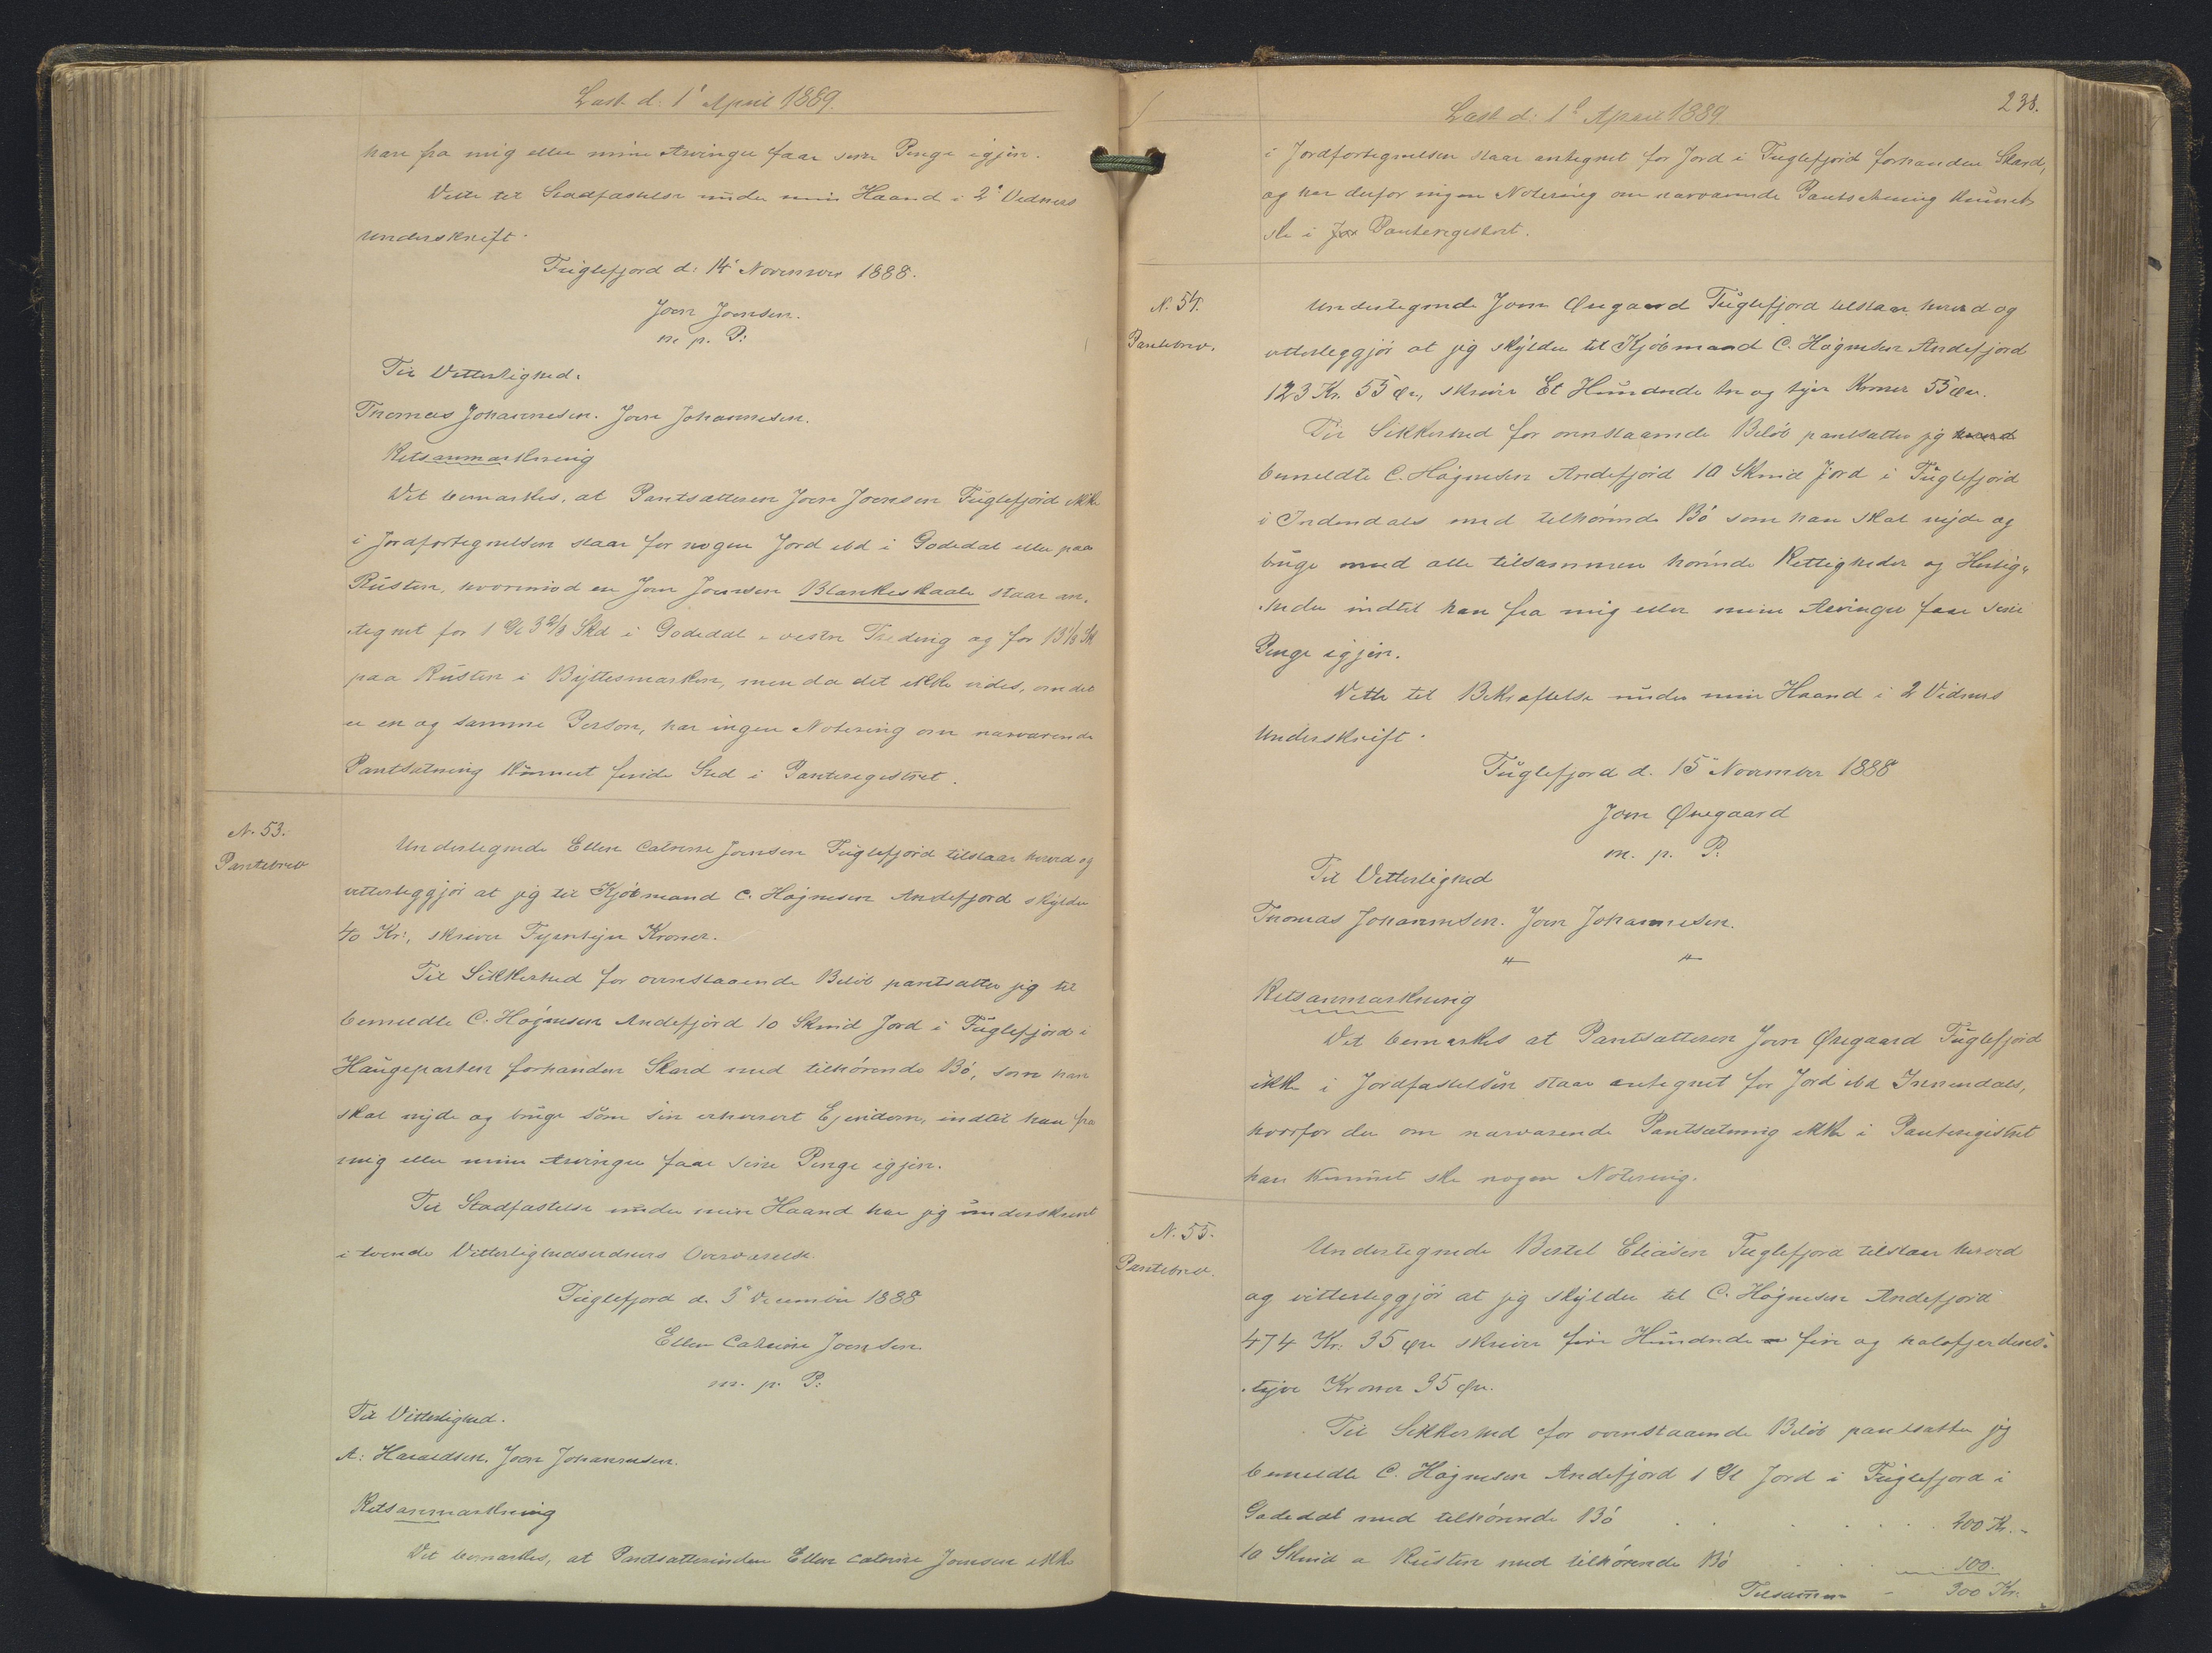 Læst d: 1' April 1889.
han fra mig eller mine Arvinger faar sine Penge igjen.
Dette til Stadfæstelse under min Haand i 2' Vidners
Underskrift.
Fuglefjord d: 14' November 1888.
Joen Joensen.
m. p. P:
Til Vitterlighed.
Thomas Johannesen. Joen Johannesen.
Retsanmærkning
Det bemærkes, at Pantsætteren Joen Joensen Fuglefjord ikke
i Jordfortegnelsen staar for nogen Jord ibd i Godedal eller paa
Rusten, hvorimod en Joen Joensen Blankeskaale staar an-
tegnet for 1 Gl 3 2/3 Skd i Godedal i vestre Treding og for 13 1/3 Sk
paa Rusten i Byttesmarken, men da det ikke vides, om det
er en og samme Person, har ingen Notering om nærværende
Pantsætning kunnet finde Sted i Panteregistret.
N. 53.
Pantebrev
Undertegnede Ellen Catrine Joensen Fuglefjord tilstaar herved og
vitterleggjør at jeg til Kjøbmand C. Højgnesen Andefjord skylder
40 Kr:, skriver Fyrretyve Kroner.
Til Sikkerhed for ovenstaaende Beløb pantsætter jeg til
bemeldte C. Højgnesen Andefjord 10 Skind Jord i Fuglefjord i
Haugeparten forhanden Skard med tilhørende Bø, som han
skal nyde og bruge som sin erhvervet Ejendom, indtil han fra
mig eller mine Arvinger faar sine Penge igjen.
Til Stadfæstelse under min Haand har jeg underskrevet
i tvende Vitterlighedsvidners Overværelse.
Fuglefjord d. 3' December 1888
Ellen Catrine Joensen
m. p. P:
Til Vitterlighed.
A: Haraldsen. Joen Johannesen.
Retsanmærkning
Det bemærkes, at Pantsætterinden Ellen Catrine Joensen ikke
238.
Læst d: 1' April 1889
i Jordfortegnelsen staar antegnet for Jord i Fuglefjord forhanden Skard,
og har derfor ingen Notering om nærværende Pantsætning kunnet
ske i Panteregistret.
N. 54.
Pantebrev.
Undertegnede Joen Øregaard Fuglefjord tilstaar herved og
vitterleggjør at jeg skylder til Kjøbmand C. Højgnesen Andefjord
123 Kr. 55 Ør, skriver Et Hundrede tre og tyve Kroner 55 Øre.
Til Sikkerhed for ovenstaaende Beløb pantsætter jeg herved
bemeldte C. Højgnesen Andefjord 10 Skind Jord i Fuglefjord
i Indendals med tilhørende Bø som han skal nyde og
bruge med alle tilsammen hørende Rettigheder og Herlig-
heder indtil han fra mig eller mine Arvinger faar sine
Penge igjen.
Dette til Bekræftelse under min Haand i 2 Vidners
Underskrift.
Fuglefjord d. 15' November 1888
Joen Øregaard
m. p. P.
Til Vitterlighed
Thomas Johannesen. Joen Johannesen.
" "
Retsanmærkning
Det bemærkes at Pantsætteren Joen Øregaard Fuglefjord
ikke i Jordfæstelsen staar antegnet for Jord ibd Innendals,
hvorfor der om nærværende Pantsætning ikke i Panteregistret
har kunnet ske nogen Notering.
N. 55.
Pantebrev.
Undertegnede Bertel Eliasen Fuglefjord tilstaar herved
og vitterleggjør at jeg skylder til C. Højgnesen Andefjord
474 Kr. 35 Øre skriver fire Hundrede fire og halvfjerdens-
tyve Kroner 35 Øre.
Til Sikkerhed for ovenstaaende Beløb pantsætter jeg
bemeldte C. Højgnesen Andefjord 1 Gl Jord i Fuglefjord i
Godedal med tilhørende Bø . . . . . 200 Kr. -
10 Skind a Rusten med tilhørende Bø . . . 100.
Tilsammen - 300 Kr.